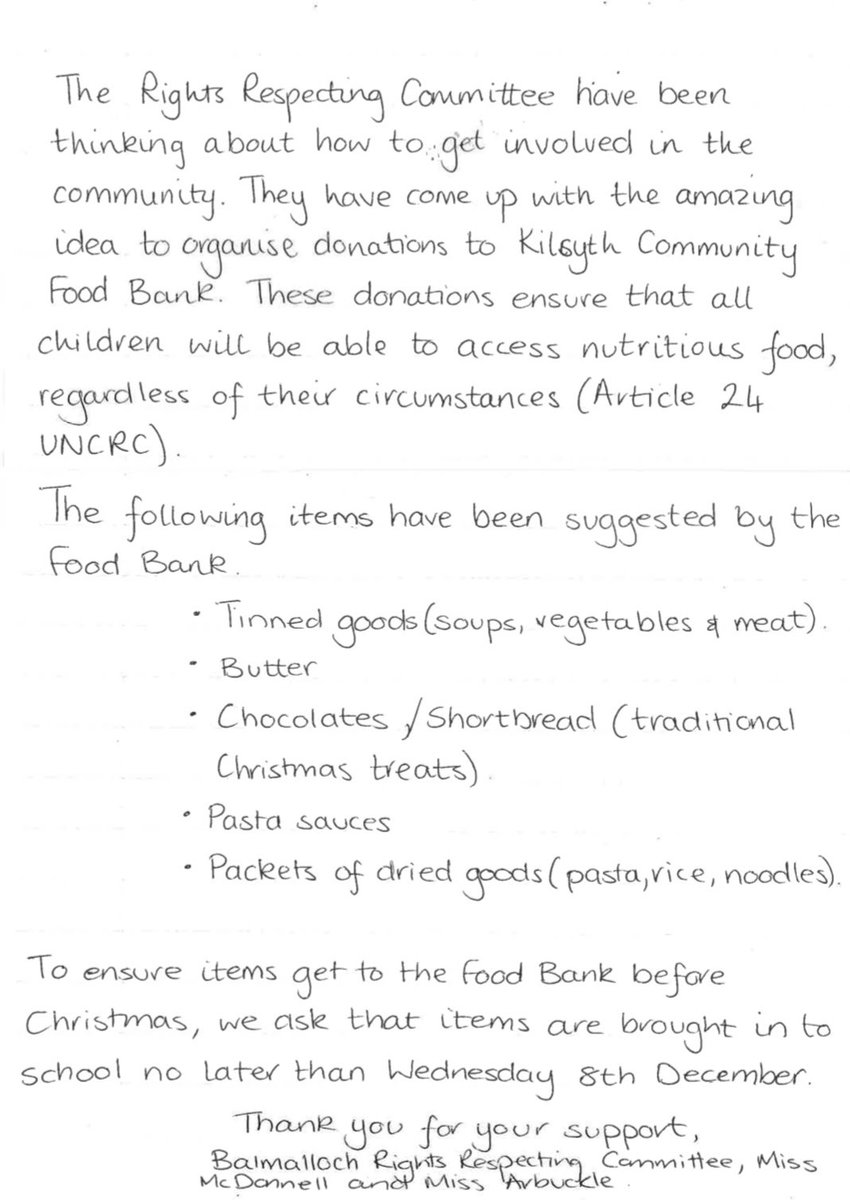 The Rights Respecting Committee have been
thinking about how to get involved in the
community. They have come up with the amazing
idea to organise donations to Kilsyth Community
Food Bank. These donations ensure that all
children will be able to access nutritious food,
regardless of their circumstances (Article 24
UNCRC).
The following items have been suggested by the
Food Bank.
• Tinned goods (soups, vegetables & meat).
• Butter
• Chocolates / Shortbread (traditional
Christmas treats).
• Pasta sauces
• Packets of dried goods (pasta, rice, noodles).
To ensure items get to the Food Bank before
Christmas, we ask that items are brought in to
school no later than Wednesday 8th December.
Thank you for your support,
Balmalloch Rights Respecting Committee, Miss
McDonnell and Miss Arbuckle.